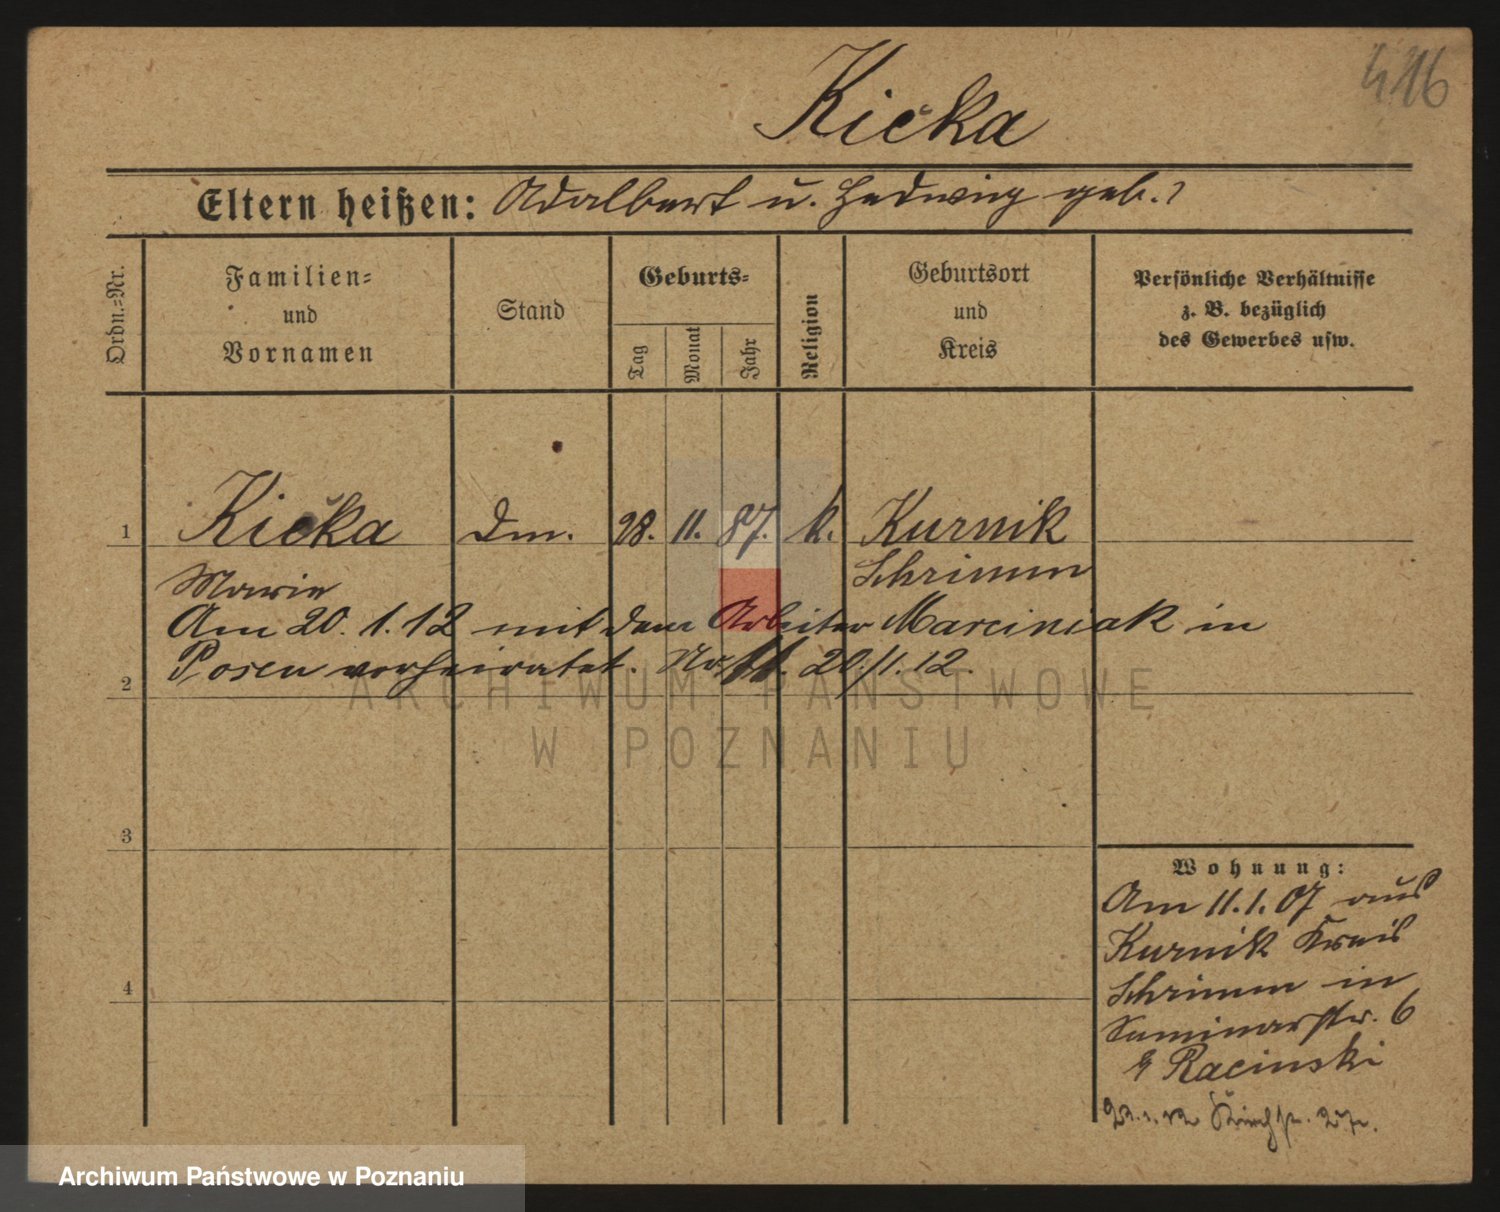 416
Kicka
Eltern heißen: Adalbert u. Hedwig geb. ?
Ordn.=Nr.
Familien=
und
Vornamen
Stand
Geburts=
Tag
Monat
Jahr
Religion
Geburtsort
und
Kreis
Persönliche Verhältnisse
z. B. bezüglich
des Gewerbes usw.
1 Kicka Dm. 28. 11. 87. k. Kurnik
Marie Schrimm
Am 20. 1. 12 mit dem Arbeiter Marciniak in
Posen verheiratet. 20./1. 12.
2
3
4
Wohnung:
Am 11. 1. 07 aus
Kurnik Kreis
Schrimm in
Seminarstr. 6
Racinski
ARCHIWUM PAŃSTWOWE
W POZNANIU
Archiwum Państwowe w Poznaniu